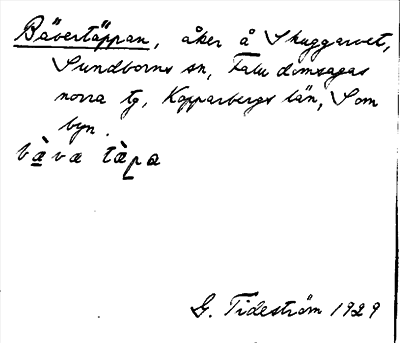 Bävertäppan, åker å Skuggarvet,
Sundborns sn, Falu domsagas
norra tg, Kopparbergs län, Som
byn.
bàvœ tàpa
G. Tideström 1929